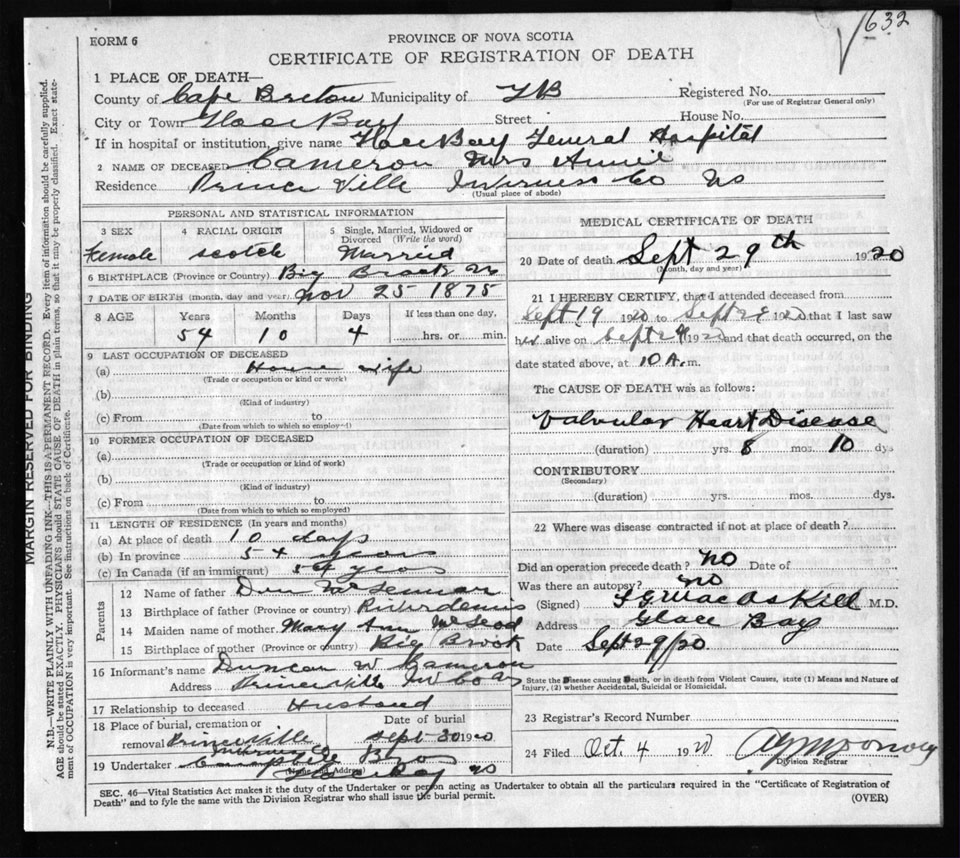 632
FORM 6
PROVINCE OF NOVA SCOTIA
CERTIFICATE OF REGISTRATION OF DEATH
1 PLACE OF DEATH—
County of Cape Breton Municipality of Registered No.
(For use of Registrar General only)
City or Town Glace Bay Street House No.
If in hospital or institution, give name Glace Bay General Hospital
2 NAME OF DECEASED Cameron Mrs Annie
Residence Prince Ville Inverness Co NS
(Usual place of abode)
PERSONAL AND STATISTICAL INFORMATION
3 SEX 4 RACIAL ORIGIN 5 Single, Married, Widowed or Divorced (Write the word)
female scotch Married
6 BIRTHPLACE (Province or Country) Big Brook NS
7 DATE OF BIRTH (month, day and year) Nov 25 1875
8 AGE Years Months Days If less than one day,
54 10 4 hrs. or min.
9 LAST OCCUPATION OF DECEASED
(a) House wife
(Trade or occupation or kind or work)
(b)
(Kind of industry)
(c) From to
(Date from which to which so employed)
10 FORMER OCCUPATION OF DECEASED
(a)
(Trade or occupation or kind of work)
(b)
(Kind of industry)
(c) From to
(Date from which to which so employed)
11 LENGTH OF RESIDENCE (In years and months)
(a) At place of death 10 days
(b) In province 54 years
(c) In Canada (if an immigrant) 54 years
Parents
12 Name of father
13 Birthplace of father (Province or country)
14 Maiden name of mother Mary Ann McLeod
15 Birthplace of mother (Province or country) Big Brook
16 Informant's name Duncan W Cameron
Address Princeville
17 Relationship to deceased Husband
18 Place of burial, cremation or Date of burial
removal Princeville Sept 30 1920
19 Undertaker
(Name and Address)
MEDICAL CERTIFICATE OF DEATH
20 Date of death Sept 29th 1920
(Month, day and year)
21 I HEREBY CERTIFY, that I attended deceased from
Sept 19 1920 to Sept 29 1920 that I last saw
her alive on Sept 29 1920 and that death occurred, on the
date stated above, at 10 A. m.
The CAUSE OF DEATH was as follows:
Valvular Heart Disease
(duration) yrs. 8 mos. 10 dys
CONTRIBUTORY
(Secondary)
(duration) yrs. mos. dys.
22 Where was disease contracted if not at place of death?
Did an operation precede death? No Date of
Was there an autopsy? no
(Signed) MacAskill M.D.
Address Glace Bay
Date Sept 29/20
State the Disease causing Death, or in death from Violent Causes, state (1) Means and Nature of
Injury, (2) whether Accidental, Suicidal or Homicidal.
23 Registrar's Record Number
24 Filed Oct. 4 1920
Division Registrar
SEC. 46—Vital Statistics Act makes it the duty of the Undertaker or person acting as Undertaker to obtain all the particulars required in the "Certificate of Registration of
Death" and to fyle the same with the Division Registrar who shall issue the burial permit. (OVER)
MARGIN RESERVED FOR BINDING
N.B.—WRITE PLAINLY WITH UNFADING INK—THIS IS A PERMANENT RECORD. Every item of information should be carefully supplied.
AGE should be stated EXACTLY. PHYSICIANS should STATE CAUSE OF DEATH in plain terms, so that it may be properly classified. Exact state-
ment of OCCUPATION is very important. See instructions on back of Certificate.